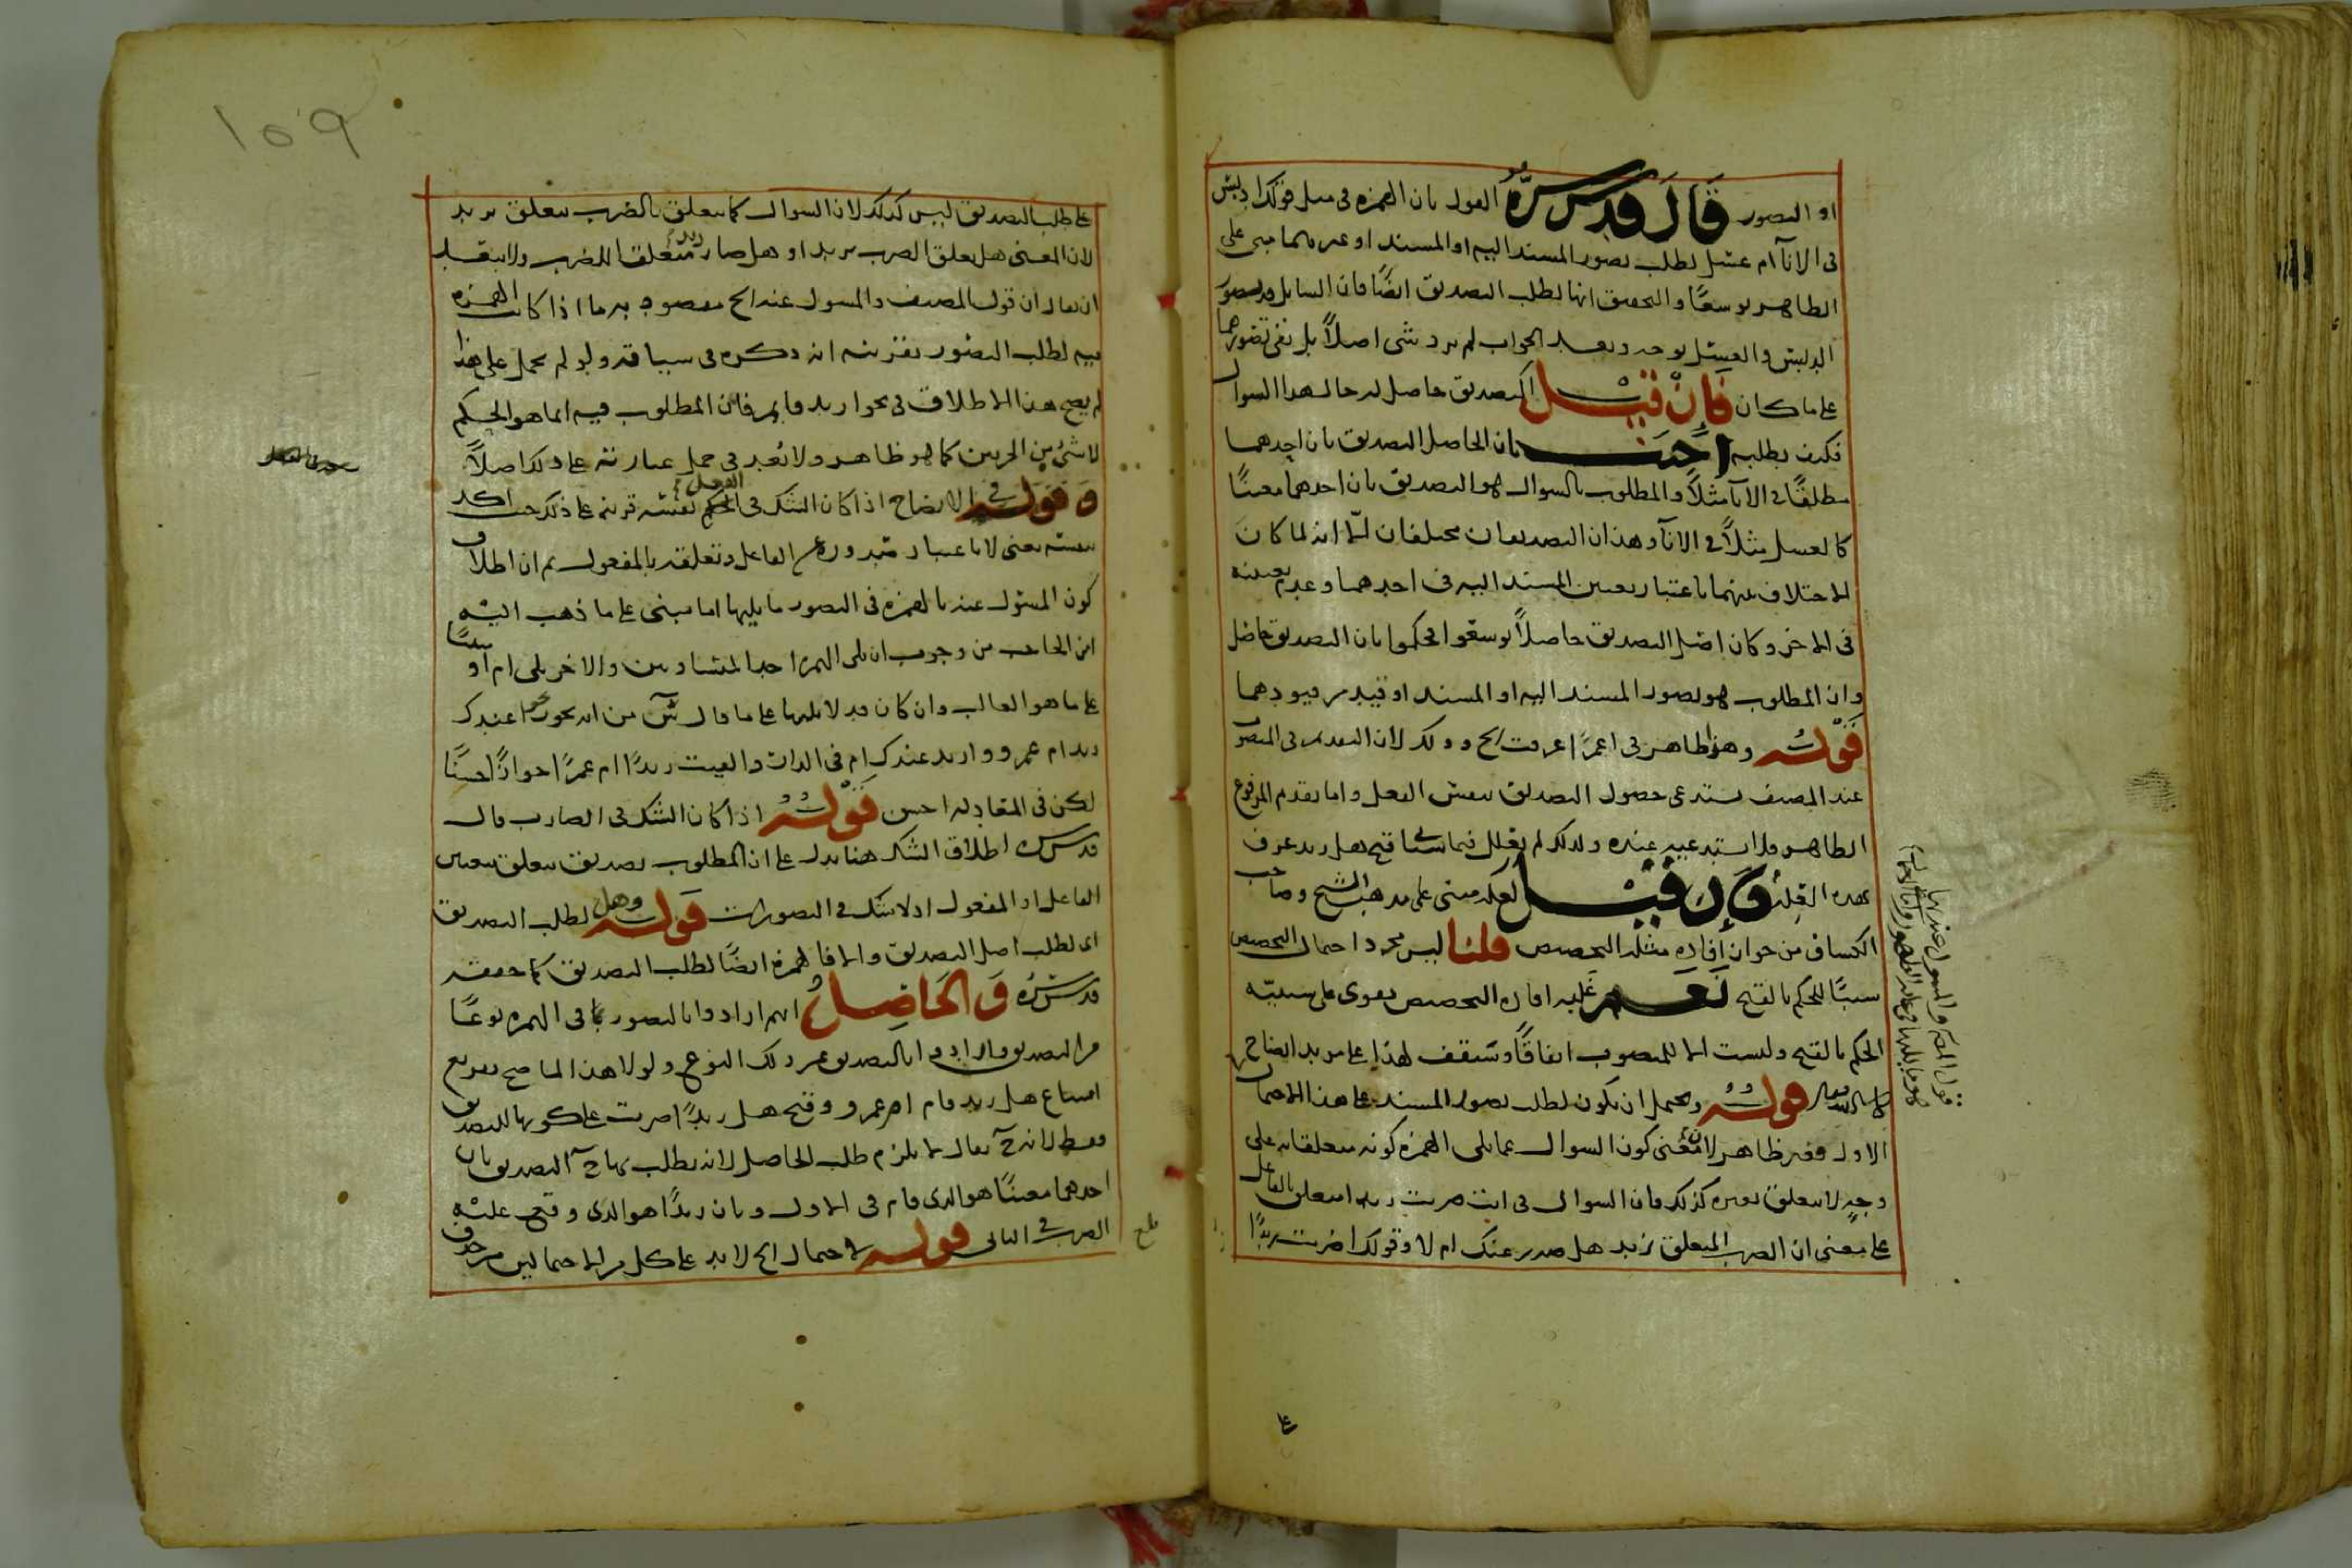 او التصور قال قدس سره القول بان الهمزة فى مثل قولك ادبس
فى الاناء ام عسل لطلب تصور المسند اليه او المسند او غيرهما مبنى على
الظاهر توسعًا والتحقيق انها لطلب التصديق ايضًا فان السايل قد تصور
الدبس والعسل بوجه وبعد الجواب لم يزد شى اصلاً بل بقى تصورهما
على ما كان فان قيل التصديق حاصل له حال هذا السوال
فكيف يطلبه اجيب بان الحاصل التصديق بان احدهما
مطلقًا فى الاناء مثلاً والمطلوب بالسوال هو التصديق بان احدهما معينًا
كالعسل مثلاً فى الاناء وهذان التصديقان مختلفان الا انه لما كان
الاختلاف بينهما باعتبار تعيين المسند اليه فى احدهما وعدم تعيينه
فى الاخر وكان اصل التصديق حاصلاً توسعوا فحكموا بان التصديق حاصل
وان المطلوب هو تصور المسند اليه او المسند او قيد من قيودهما
قوله وهذا ظاهر فى اعمرًا عرفت الخ وذلك لان التقديم فى المنصوب
عند المصنف يستدعى حصول التصديق بنفس الفعل واما تقديم المرفوع
الظاهر فلا يستدعيه عنده ولذلك لم يعلل فيما سياتى قبح هل زيد عرف
بهذه العلة فان قيل لعله مبنى على مذهب الشيخ وصاحب
الكشاف من جواز افادة مثله التخصيص قلنا ليس مجرد احتمال التخصيص
سببًا للحكم بالقبح نعم غلبه افادة التخصيص يقوى على سببية
الحكم بالقبح وليست الا للمنصوب اتفاقًا وستقف لهذا على مزيد ايضاح
ان شاء الله تعالى قوله ويحتمل ان يكون لطلب تصور المسند على هذا الاحتمال
الاول ففيه ظاهر لان معنى كون السوال عما يلى الهمزة كونه متعلقا به على
وجه لا يتعلق بغيره كذلك فان السوال فى اانت ضربت زيدا متعلق بالفاعل
على معنى ان الضرب المتعلق بزيد هل صدر عنك ام لا وقولك اضربت زيدًا
على
١٥٩
على طلب التصديق ليس كذلك لان السوال كما يتعلق بالضرب يتعلق بزيد
لان المعنى هل تعلق الضرب بزيد او هل صار زيد متعلقا للضرب ولا ينقلب
ان يقال ان قول المصنف والمسول عنه الخ مقصود به ما اذا كانت الهمزة
فيه لطلب التصور بقرينة انه ذكره فى سياقه ولو لم يحمل على هذا
لم يصح هذا الاطلاق فى نحو ازيد قايم فان المطلوب فيه انما هو الحكم
لا شئ من الجزيين كما هو ظاهر ولا بُعد فى حمل عبارته على ذلك اصلاً
وقوله فى الايضاح اذا كان الشك فى الفعل نفسه قرينة على ذلك حيث اكد
بنفسه يعنى لا باعتبار صدوره عن الفاعل وتعلقه بالمفعول ثم ان اطلاق
كون المسئول عنه بالهمزة فى التصور ما يليها اما مبنى على ما ذهب اليه
ابن الحاجب من وجوب ان يلى الهمزة احد المتساويين والاخر يلى ام او مبنيًا
على ما هو الغالب وان كان قد لا يليها على ما قال س من انه يجوز نحو اعندك
زيد ام عمرو وازيد عندك ام فى الدار والقيت زيدًا ام عمرًا جوازًا حسنًا
لكن فى المعادلة احسن قوله اذا كان الشك فى الضارب قال
قدس سره اطلاق الشك هنا يدل على ان المطلوب تصديق يتعلق بتعيين
الفاعل او المفعول اذ لا شك فى التصورات قوله وهل لطلب التصديق
اى لطلب اصل التصديق والا فالهمزة ايضًا لطلب التصديق كما حققه
قدس سره والحاصل انهم ارادوا بالتصور كما فى الهمزة نوعًا
من التصديق وارادوا بالتصديق غير ذلك النوع ولولا هذا لما صح تفريع
امتناع هل زيد قام ام عمرو وقبح هل زيدًا ضربت على كونها للتصديق
فقط لانه ح يقال لا يلزم طلب الحاصل لانه يطلب بها ح التصديق بان
احدهما معينًا هو الذى قام فى الاول وبان زيدًا هو الذى وقع عليه
الضرب فى الثانى قوله لاحتمال الخ لا بد على كل من الاحتمالين من حذف